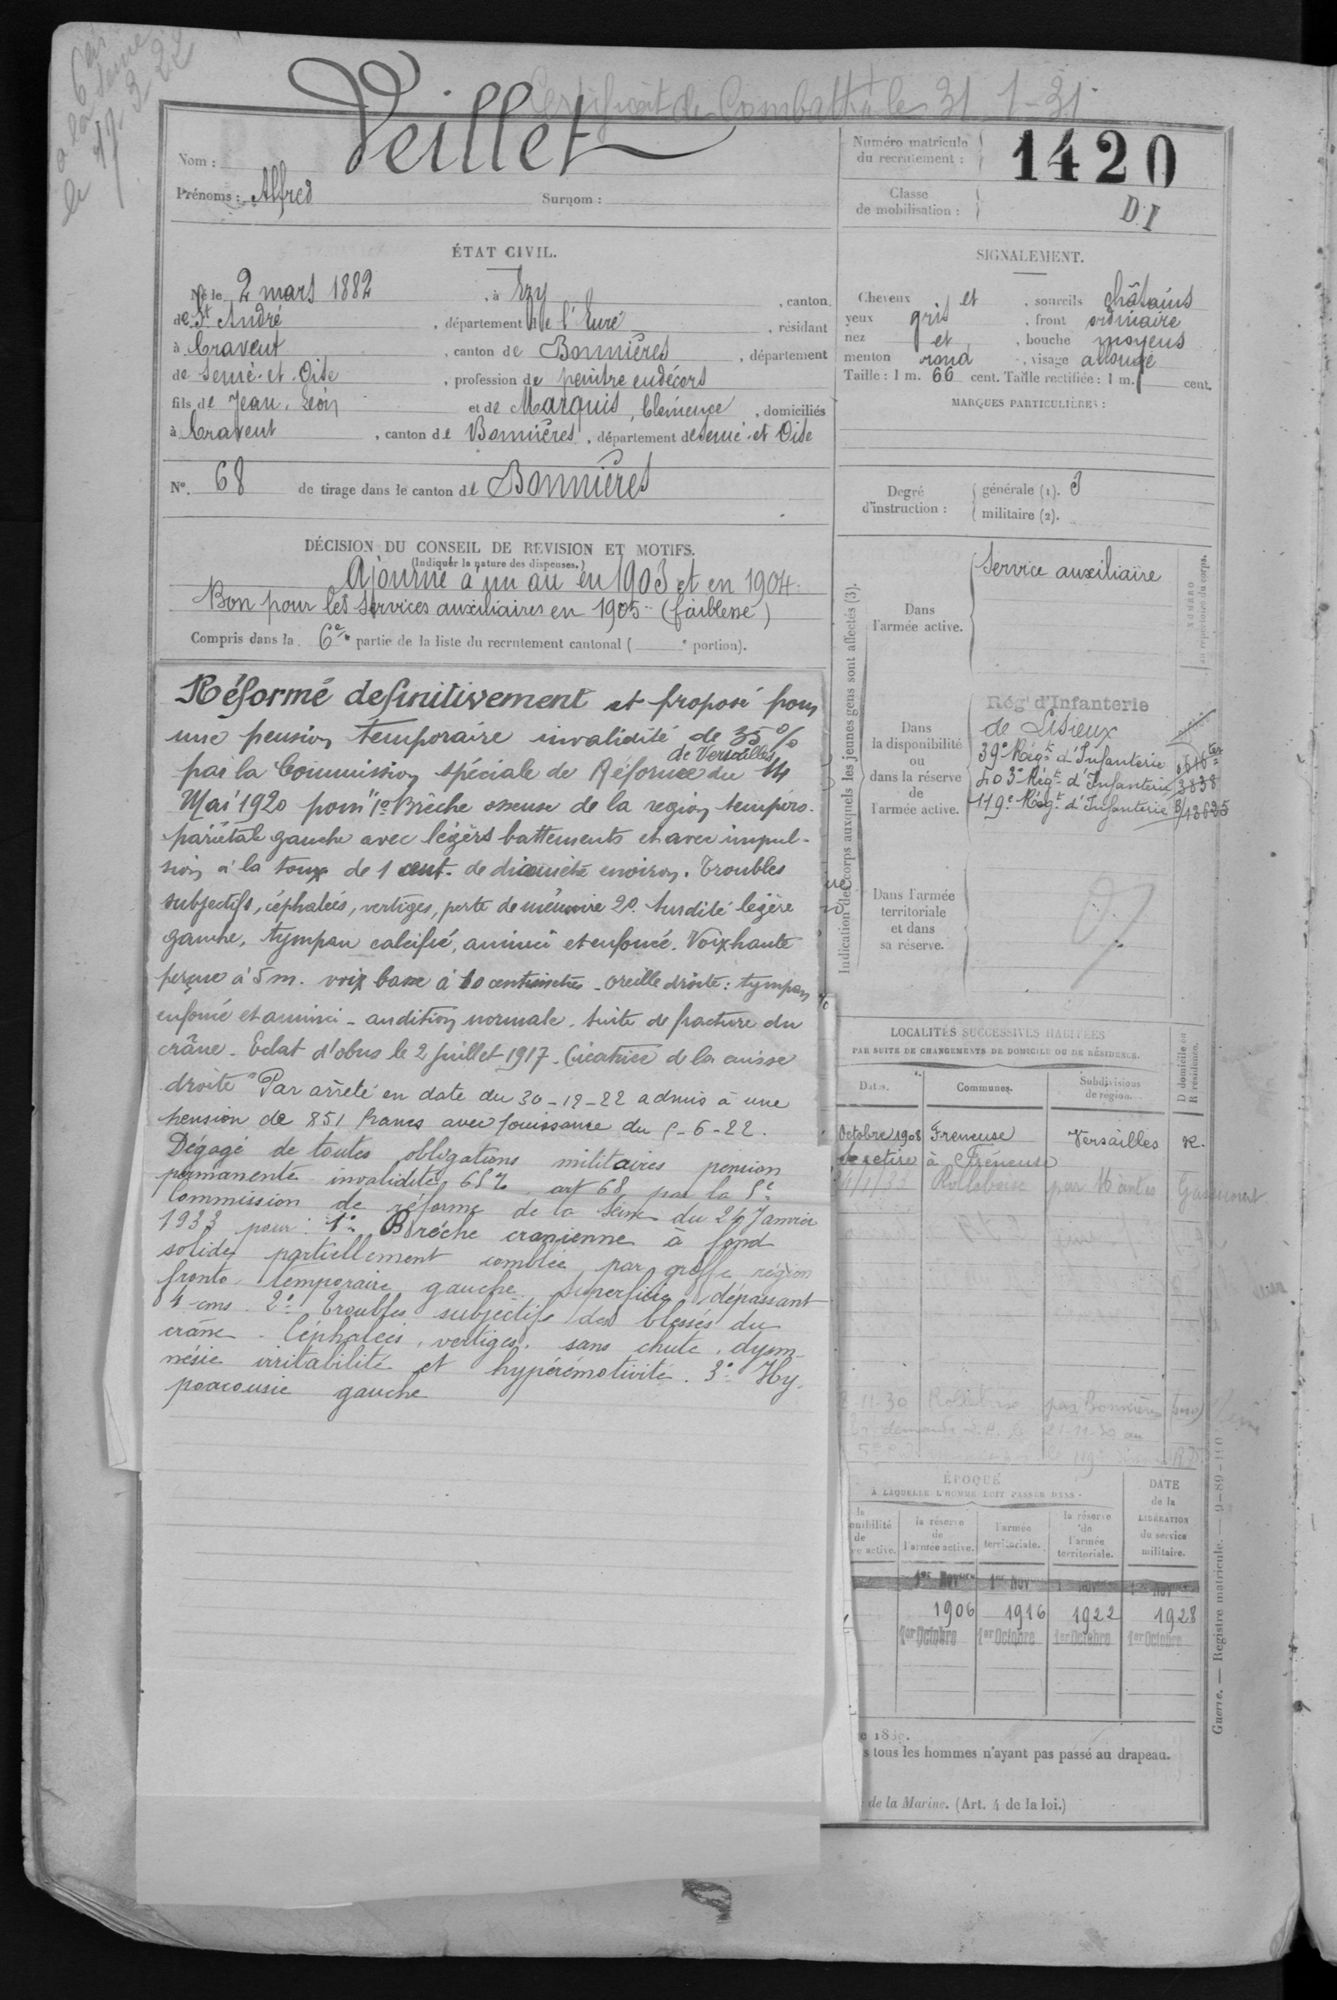 à la Seine
le 17 3 22
Certificat de Combattt le 31-1-31
Nom : Veillet
Prénoms : Alfred Surnom :
Numéro matricule
du recrutement : 1420
Classe
de mobilisation : D.I
ÉTAT CIVIL.
Né le 2 mars 1882, à Ezy, canton
de St André, département de l'Eure, résidant
à Cravent, canton de Bonnières, département
de Seine-et-Oise, profession de peintre en décors
fils de Jean, Léon et de Marquis, Clémence, domiciliés
à Cravent, canton de Bonnières, département de Seine-et-Oise
N° 68 de tirage dans le canton de Bonnières
SIGNALEMENT.
Cheveux et, sourcils châtains
yeux gris, front ordinaire
nez et, bouche moyens
menton rond, visage allongé
Taille : 1 m. 66 cent. Taille rectifiée : 1 m. cent.
MARQUES PARTICULIÈRES :
Degré
d'instruction :
générale (1). 3
militaire (2).
DÉCISION DU CONSEIL DE REVISION ET MOTIFS.
(Indiquer la nature des dispenses.)
Ajourné à un an en 1903 et en 1904.
Bon pour les services auxiliaires en 1905 (faiblesse)
Compris dans la 6e partie de la liste du recrutement cantonal ( e portion).
Réformé définitivement et proposé pour
une pension temporaire invalidité de 35%
par la Commission spéciale de Réforme de Versailles du 14
Mai 1920 pour "1° Brèche osseuse de la région temporo-
pariétale gauche avec légers battements et avec impul-
sion à la toux de 1 cent. de diamètre environ. Troubles
subjectifs, céphalées, vertiges, perte de mémoire 2° Surdité légère
gauche, tympan calcifié, aminci et enfoncé. Voix haute
perçue à 5 m. voix basse à 10 centimètres - oreille droite : tympan
enfoncé et aminci - audition normale. Suite de fracture du
crâne - Eclat d'obus le 2 juillet 1917. Cicatrice de la cuisse
droite" Par arrêté en date du 30-12-22 admis à une
pension de 851 francs avec jouissance du 5-6-22.
Dégagé de toutes obligations militaires pension
permanente invalidité 65% art 68 par la 5e
Commission de réforme de la Seine du 24 Janvier
1933 pour : 1° Brèche cranienne à fond
solide partiellement comblée par greffe région
fronto temporaire gauche. Superficie dépassant
4 cms. 2° Troubles subjectifs des blessés du
crâne - Céphalées, vertiges, sans chute, dysm-
nésie irritabilité et hypérémotivité. 3° Hy-
poacousie gauche
Indication des corps auxquels les jeunes gens sont affectés (3).
NUMÉRO
au répertoire du corps.
Dans
l'armée active.
Service auxiliaire
Dans
la disponibilité
ou
dans la réserve
de
l'armée active.
Rég d'Infanterie
de Lisieux
39e Régt d'Infanterie
403e Régt d'Infanterie 3838
119e Régt d'Infanterie
Dans l'armée
territoriale
et dans
sa réserve.
LOCALITÉS SUCCESSIVES HABITÉES
PAR SUITE DE CHANGEMENTS DE DOMICILE OU DE RÉSIDENCE.
Dates. Communes. Subdivisions
de région. D domicile ou
R résidence.
Octobre 1908 Freneuse Versailles R.
Se retire à Fréneuse
Rolleboise par Mantes
11-30 Rolleboise par Bonnières
21-11-30
ÉPOQUE
À LAQUELLE L'HOMME DOIT PASSER DANS
la réserve
de
l'armée active.
l'armée
territoriale.
la réserve
de
l'armée
territoriale.
DATE
de la
LIBÉRATION
du service
militaire.
1er Nov 1er Nov
1906 1916 1922 1928
1er Octobre 1er Octobre 1er Octobre 1er Octobre
s tous les hommes n'ayant pas passé au drapeau.
de la Marine. (Art. 4 de la loi.)
Guerre. — Registre matricule.